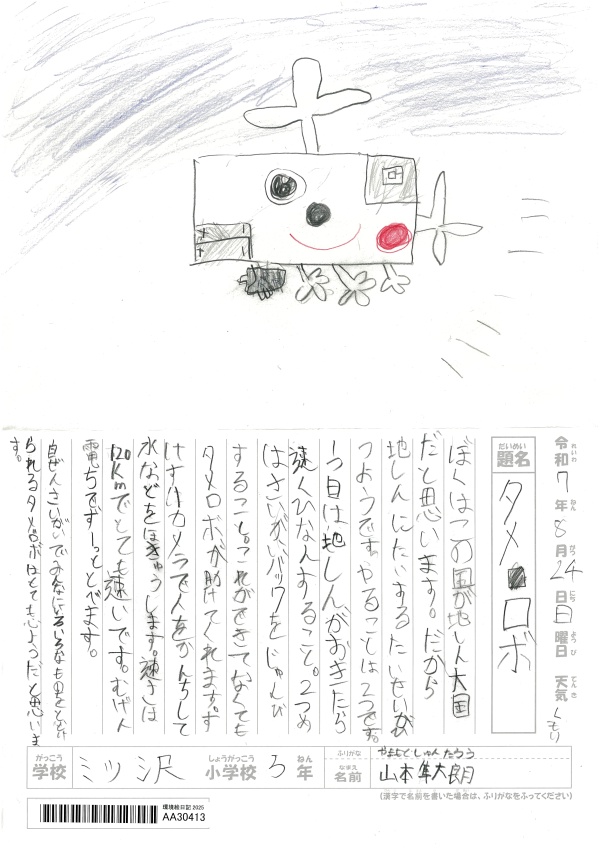 令和7年8月24日日曜日 天気くもり
題名 タメロボ
ぼくはこの国が地しん大国
だと思います。だから
地しんにたいするたいせいが
つようです。やることは2つです。
1つ目は地しんがおきたら
速くひなんすること。2つめ
はさいがいバッグをじゅんび
すること。これができてなくても
タメロボが助けてくれます。ず
けすけカメラで人をかんちして
水などをほきゅうします。速さは
120kmでとても速いです。むげん
電ちでずーっととべます。
自ぜんさいがいでみんなにいろいろなものをとどけ
られるタメロボはとても心ようだと思いま
す。
がっこう 学校 三ツ沢 しょうがっこう 小学校 3 ねん 年
ふりがな やまもと しゅんたろう
なまえ 名前 山本隼太朗
(漢字で名前を書いた場合は、ふりがなをふってください)
環境絵日記 2025
AA30413